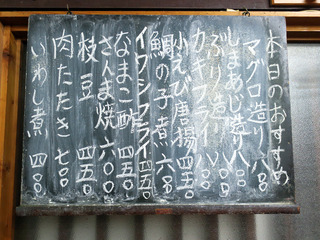 本日のおすすめ
マグロ造り 八〇〇
しまあじ造り 八〇〇
ぶり造り
カキフライ 八〇〇
小えび唐揚 四五〇
鯛の子煮 六五〇
イワシフライ 四五〇
なまこ酢 四五〇
さんま焼 六〇〇
枝豆 四五〇
肉たたき 七〇〇
いわし煮 四五〇